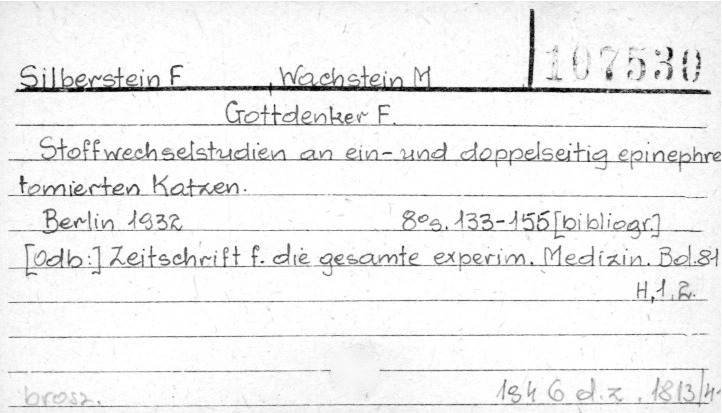 107530
Silberstein F , Wachstein M
Gottdenker F.
Stoffwechselstudien an ein- und doppelseitig epinephre
tomierten Katzen.
Berlin 1932 8os. 133-155 [bibliogr.]
[Odb:] Zeitschrift f. die gesamte experim. Medizin. Bd. 81
H, 1, 2.
brosz. 1846 d.z. 1813/41